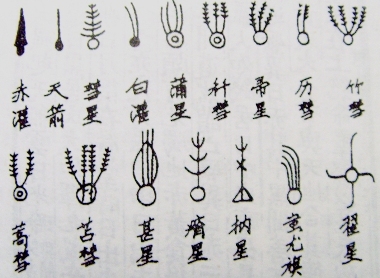 赤灌 天箭 彗星 白灌 蒲星 秆彗 帚星 历彗 竹彗
蒿彗 苫彗 甚星 瘠星 抐星 蚩尤旗 翟星